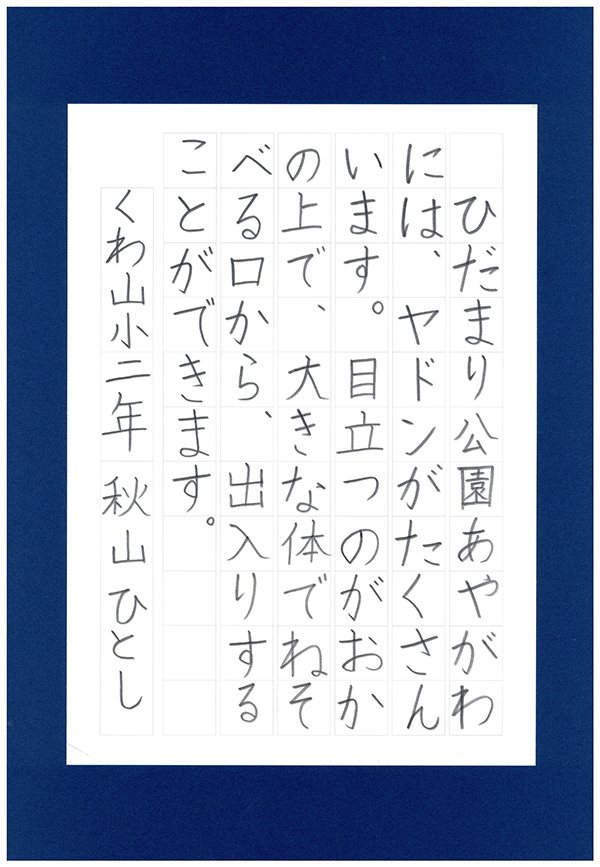 ひだまり公園あやがわ
には、ヤドンがたくさん
います。目立つのがおか
の上で、大きな体でねそ
べる口から、出入りする
ことができます。
くわ山小二年 秋山ひとし